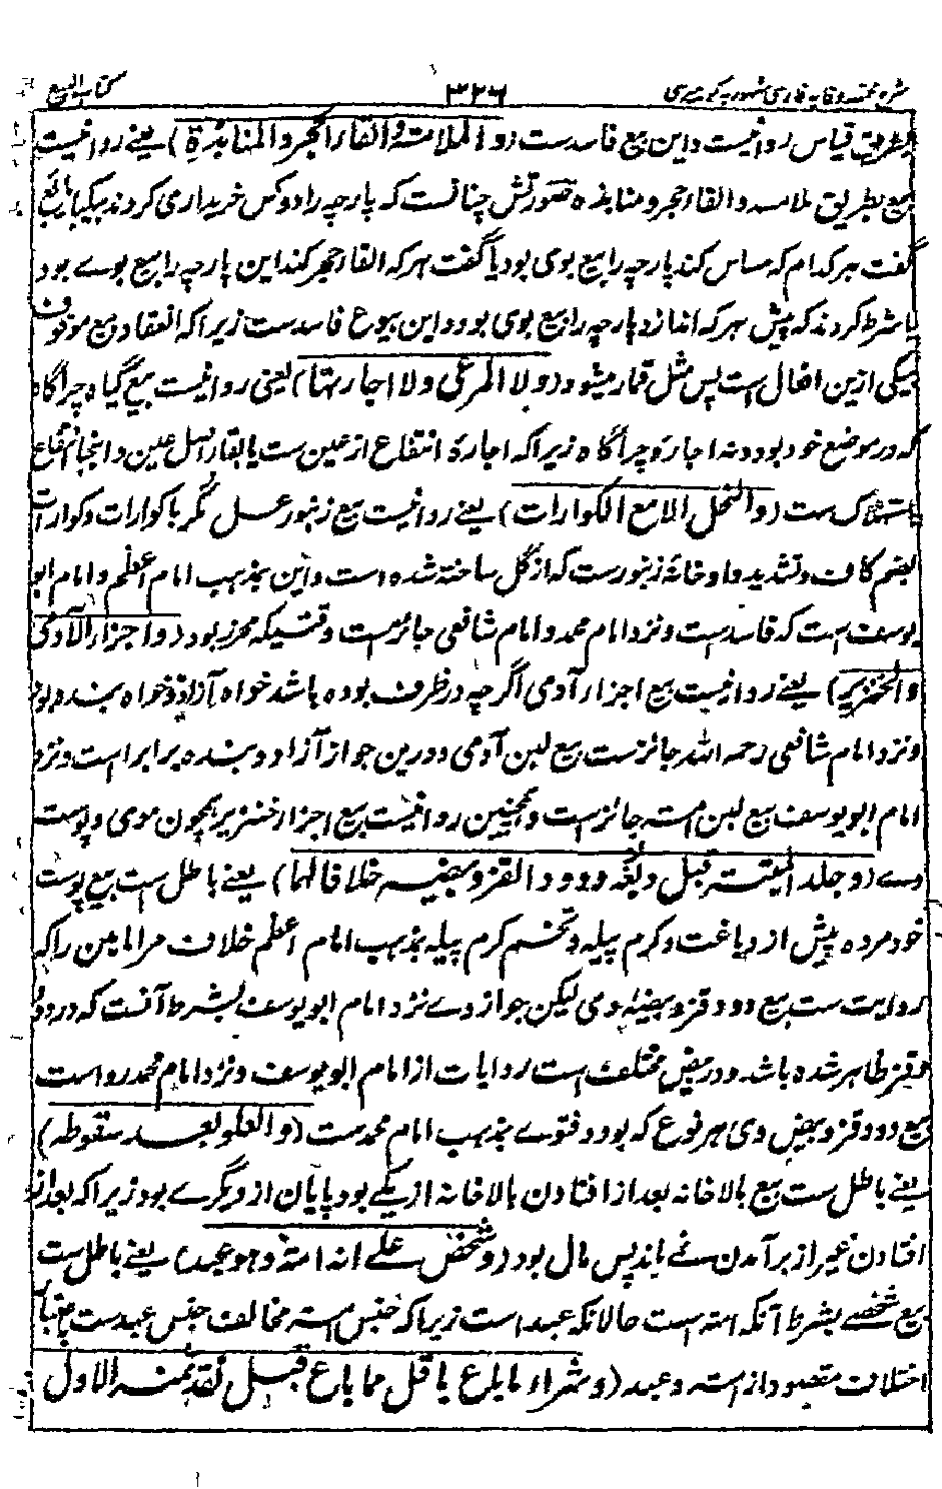 شرح مختصر وقایه فارسی مشهور به کو سری ۳۲۶ کتاب البیع
بطریق قیاس روا نیست و این بیع فاسدست (و الملامسة و القاء الحجر و المنابذة) یعنے روا نیست
بیع بطریق ملامسه و القاء حجر و منابذه صورتش چنانست که پارچه را دو کس خریداری کردند پس یکی بائع
گفت هر کدام که مساس کند پارچه را بیع بوی بود یا گفت هر که القاء حجر کند این پارچه را بیع بوے بود
یا شرط کردند که پیش هر که اندازد پارچه را بیع بوی بود و این بیوع فاسدست زیرا که انعقاد بیع موقوف
بیکی ازین افعال است پس مثل قمار میشود (و لا المرعی و لا اجارتها) یعنی روا نیست بیع گیاه چراگاه
که در موضع خود بود و نه اجاره چراگاه زیرا که اجارهٔ انتفاع از عین ست با بقاء اصل عین و اینجا انتفاع
باستهلاک ست (و النحل الا مع الکوارات) یعنے روا نیست بیع زنبور عسل مگر با کوارات و کوارات
بضم کاف و تشدید واو خانهٔ زنبورست که از گل ساخته شده است و این بمذهب امام اعظم و امام ابو
یوسف ست که فاسدست و نزد امام محمد و امام شافعی جائزست وقتیکه محرز بود (و اجزاء الآدمی
و الخنزیر) یعنے روا نیست بیع اجزاء آدمی اگر چه در ظرف بوده باشد خواه آزاد و خواه بنده بود
و نزد امام شافعی رحمه الله جائزست بیع لبن آدمی و درین جواز آزاد و بنده برابر است و نزد
امام ابو یوسف بیع لبن امته جائزست و همچنین روا نیست بیع اجزاء خنزیر همچون موی و پوست
وے (و جلد المیتة قبل دبغه و دود القز و بیضه خلافا لهما) یعنے باطل ست بیع پوست
خود مرده پیش از دباغت و کرم پیله و تخم کرم پیله بمذهب امام اعظم خلاف مر امامین را که
روایت ست بیع دود قز و بیضهٔ وی لیکن جواز وے نزد امام ابو یوسف بشرط آنست که در دود
قز ظاهر شده باشد و در بیض مختلف است روایات از امام ابو یوسف و نزد امام محمد رواست
بیع دود قز و بیض وی هر نوع که بود و فتوے بمذهب امام محمدست (و العلو بعد سقوطه)
یعنے باطل ست بیع بالاخانه بعد از افتادن بالاخانه از یکے بود پایان از دیگرے بود زیرا که بعد از
افتادن غیر از برآمدن نمے ماند پس مال نبود (و شخص علے انه امة و هو عبد) یعنے باطل ست
بیع شخصے بشرط آنکه امته است حالانکه عبد است زیرا که جنس امته مخالف جنس عبدست باعتبار
اختلاف مقصود از امته و عبد (و شراء ما باع باقل مما باع قبل نقد ثمنه الاول